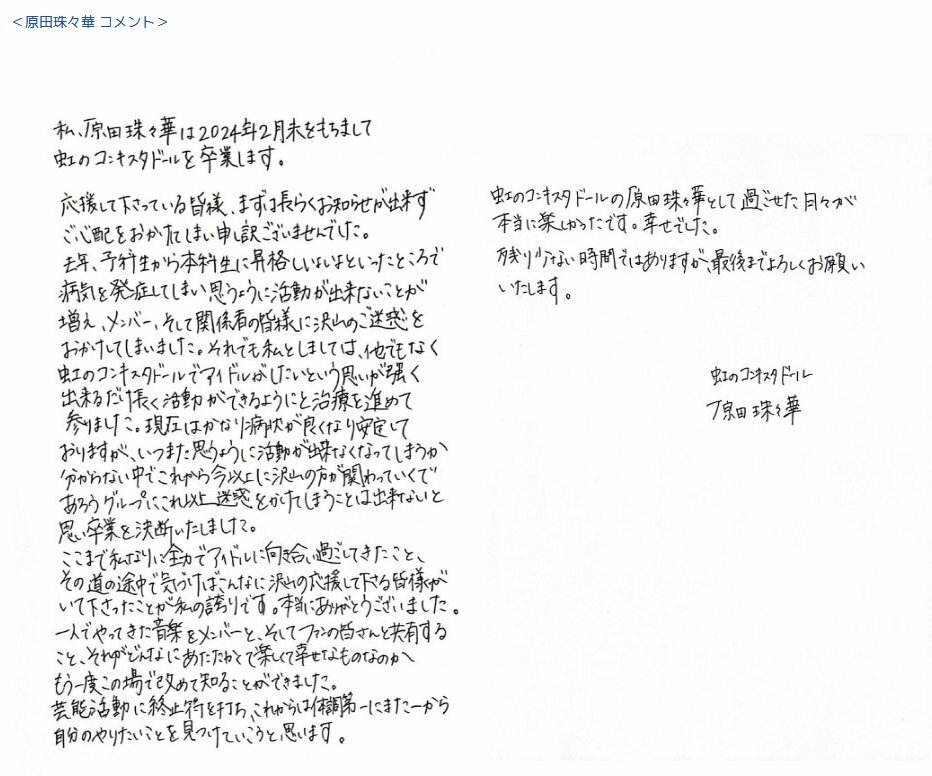 <原田珠々華 コメント>
私、原田珠々華は2024年2月末をもちまして
虹のコンキスタドールを卒業します。
応援して下さっている皆様、まずは長らくお知らせが出来ず
ご心配をおかけしてしまい申し訳ございませんでした。
去年、予科生から本科生に昇格しいよいよといったところで
病気を発症してしまい思うように活動が出来ないことが
増え、メンバー、そして関係者の皆様に沢山のご迷惑を
おかけしてしまいました。それでも私としましては、他でもなく
虹のコンキスタドールでアイドルがしたいという思いが強く
出来るだけ長く活動ができるようにと治療を進めて
参りました。現在はかなり病状が良くなり安定して
おりますが、いつまた思うように活動が出来なくなってしまうか
分からない中でこれから今以上に沢山の方が関わっていくで
あろうグループにこれ以上迷惑をかけてしまうことは出来ないと
思い卒業を決断いたしました。
ここまで私なりに全力でアイドルに向き合い過ごしてきたこと、
その道の途中で気づけばこんなに沢山の応援して下さる皆様が
いて下さったことが私の誇りです。本当にありがとうございました。
一人でやってきた音楽をメンバーと、そしてファンの皆さんと共有する
こと、それがどんなにあたたかくて楽しくて幸せなものなのか
もう一度この場で改めて知ることができました。
芸能活動に終止符を打ち、これからは体調第一にまた一から
自分のやりたいことを見つけていこうと思います。
虹のコンキスタドールの原田珠々華として過ごせた日々が
本当に楽しかったです。幸せでした。
残り少ない時間ではありますが、最後までよろしくお願い
いたします。
虹のコンキスタドール
原田珠々華